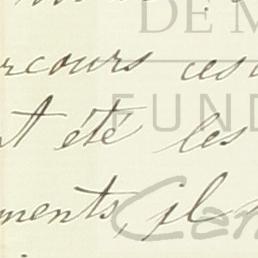 DE M
rcours ces
FUND
t été les
ments, il
Can